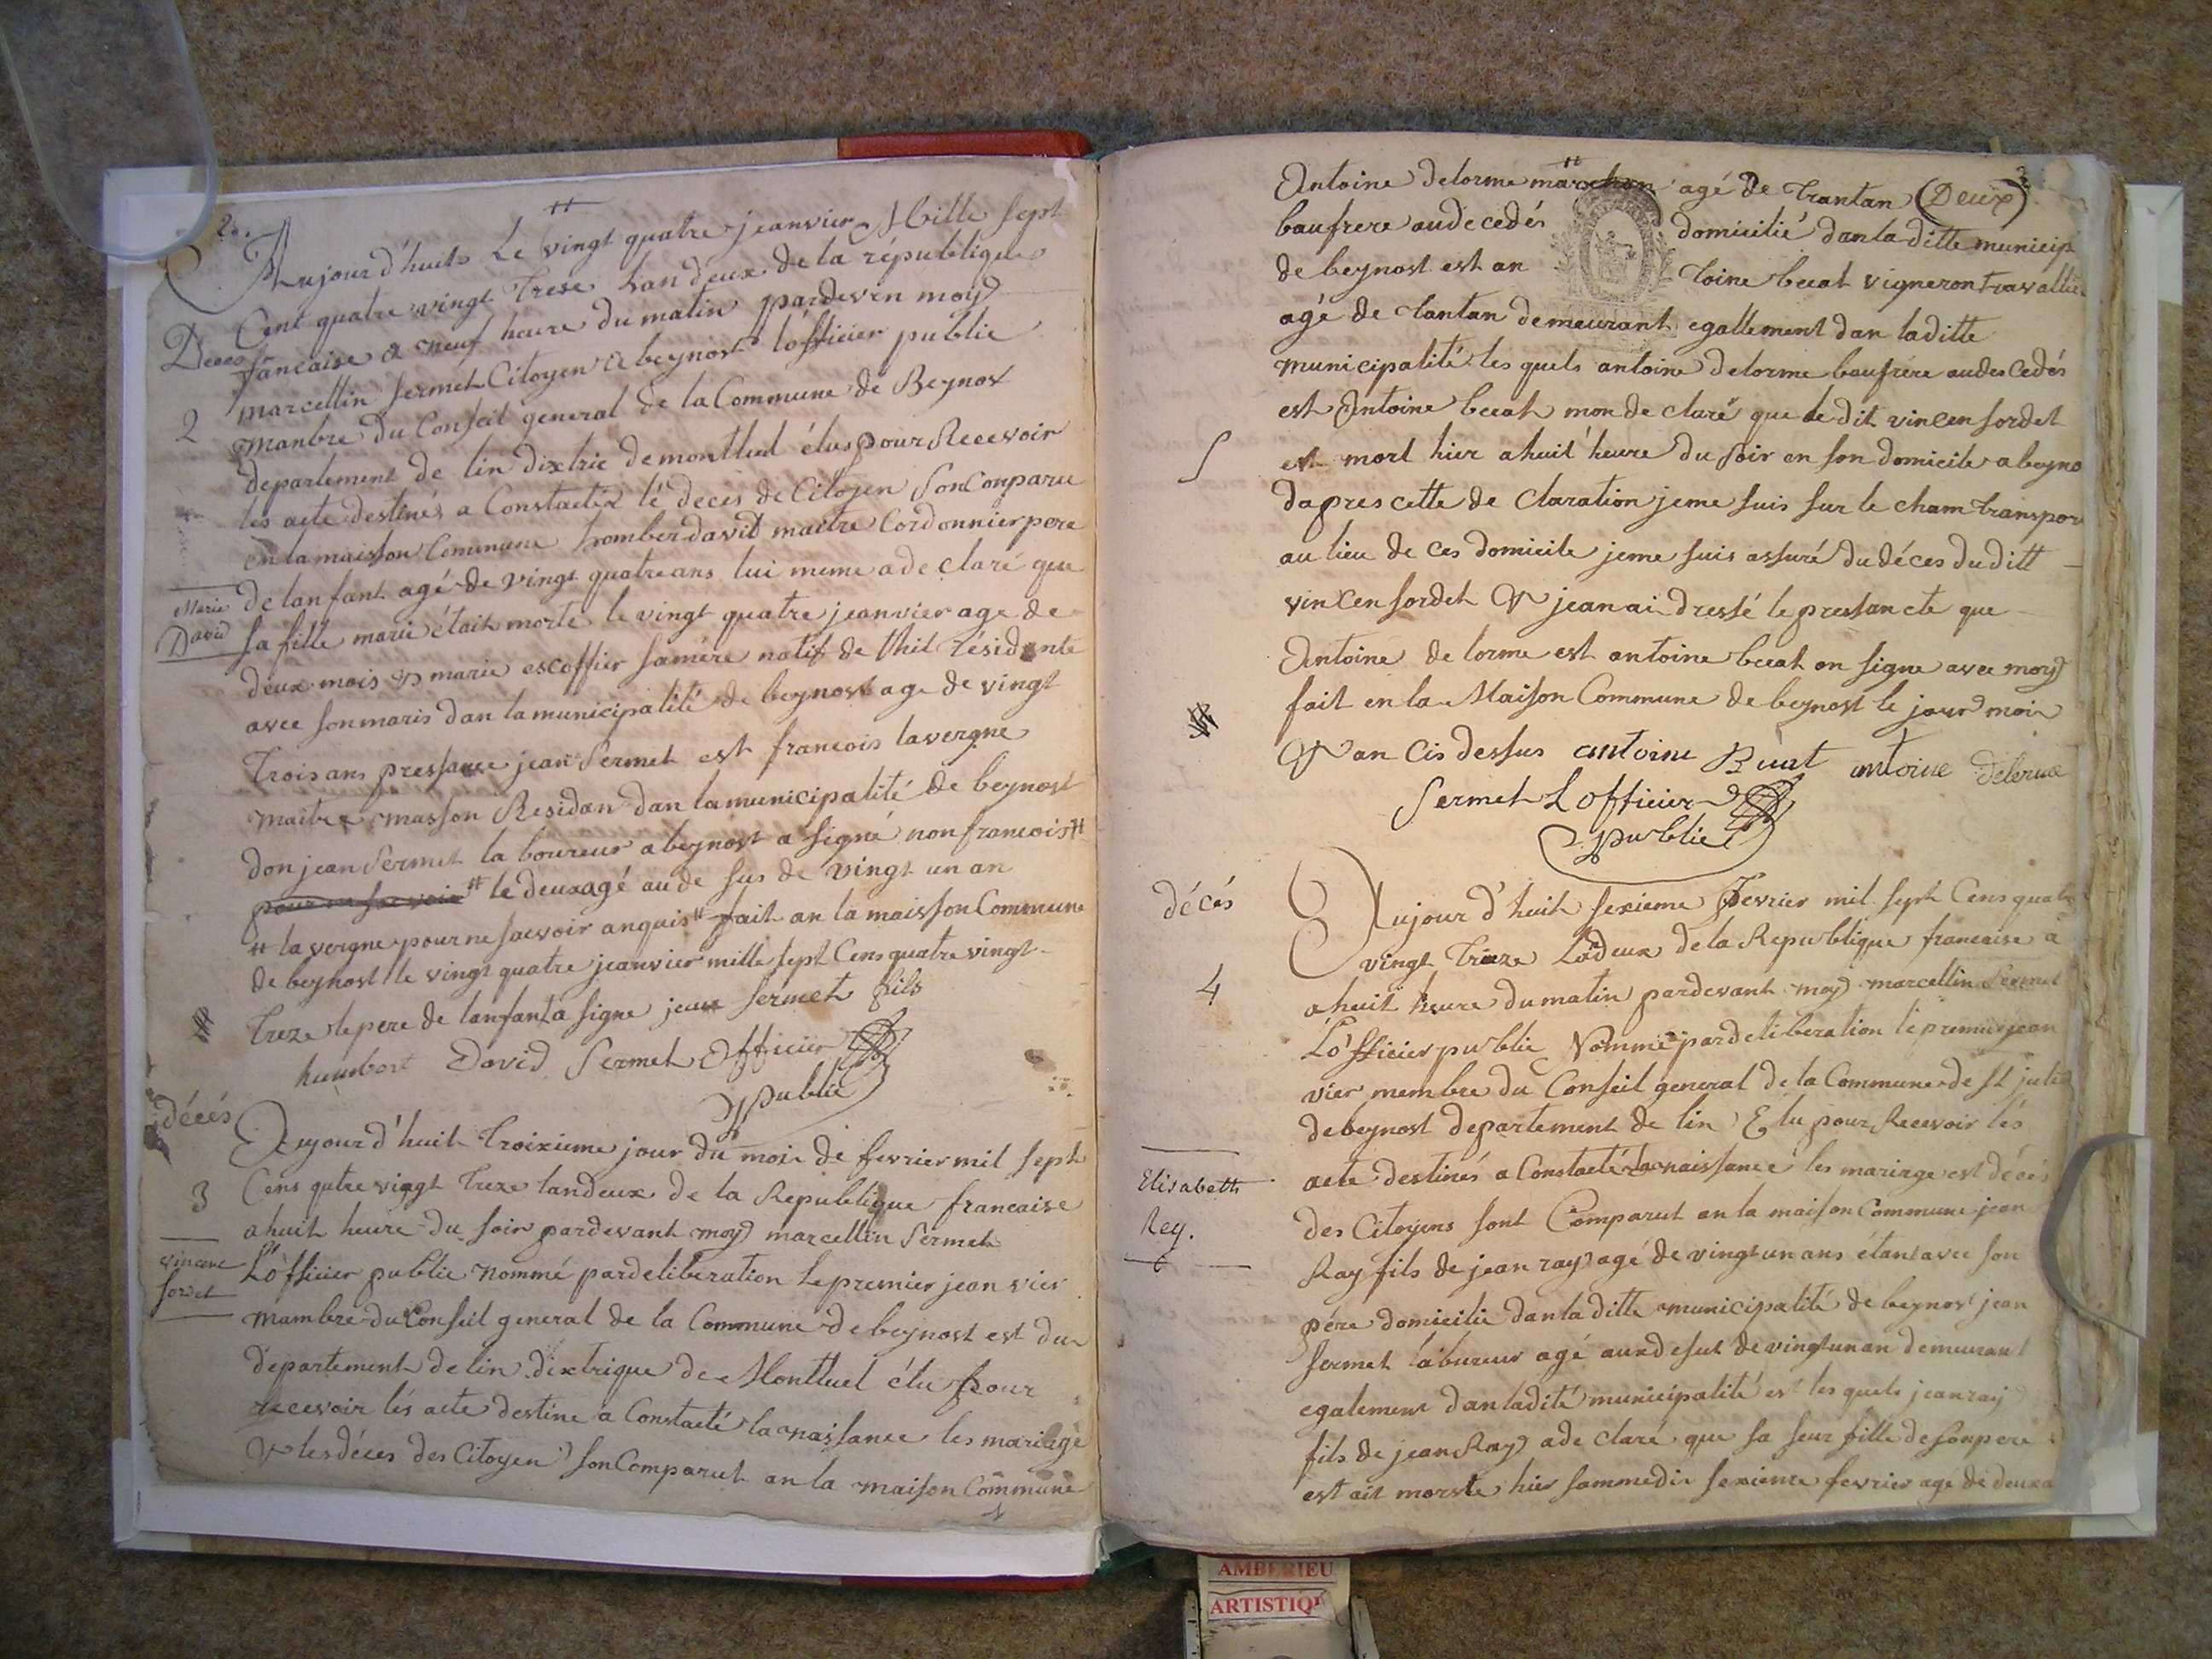 2e.
Aujourd'huit Le vingt quatre jeanvier Mille sept
Cent quatre vingt Treze Lan deux de la république
Deces
francaise a neuf heure du matin pardevin moy
marcellin Sermet Citoyen a beynost lofficier public
2
manbre du Conseil general de la Commune de Beynost
departement de lin dixtric de montluel élus pour Recevoir
les acte destinés a Constactér lé deces de Citoyen Son Conparu
en la maisson Commune homber david maitre Cordonnier pere
de lanfant agé de vingt quatre ans lui meme a de claré que
Marie
David
sa fille marie était morte le vingt quatre jeanvier age de
deux mois & marie escoffier samère natif de thil résidente
avec son maris dan la municipalité de beynost age de vingt
Trois ans pressance jean Sermet est francois lavergne
maitre masson Residan dan la municipalité de beynost
don jean Sermet la boureur a beynost a signé non francois #
pour ne savoir # le deux agé au de sus de vingt un an
# la vergne pour ne saevoir anquis # fait an la maisson Commune
de beynost le vingt quatre jeanvier mille sept Cens quatre vingt
Treze le pere de lanfant a signe jean sermet fils
humbert David Sermet Officier
public
décés
Aujourd'huit Troixieme jour du mois de fevrier mil sept
Cens qutre vingt Treze lan deux de la Republique francaise
3
a huit heure du soir pardevant moy marcellin Sermet
vincent
sordet
Lofficier public nommé par deliberation le premier jean vier
mambre du Conseil general de la Commune de beynost est du
departement de lin dixtrique de Montluel élu pour
recevoir lés acte destine a Constacté la naissance les mariage
& les déces des Citoyen son Comparut an la maison Commune
Antoine delorme marechan agé de Trantan (Deux)
baufrere au decedés domicilié dan la ditte municip
de beynost est an toine beeat vigneron travallie
agé de tantan demeurant egallement dan laditte
municipalité les quels antoine delorme baufrere au des cedés
est Antoine beeat mon de claré que le dit vincen sordet
est mort hier a huit heure du soir en son domicile a beyno
dapres cette de claration jeme suis sur le cham transpor
au lieu de ces domicile jeme suis assuré du déces du ditt
vincen sordet & jean ai dressé le pressan cte que
Antoine de lorme est antoine beeat on signe avec moy
fait en la Maison Commune de beynost le jour mois
& an cis dessus antoine Beeat antoine delerme
Sermet Lofficier
public
décés
Aujour d'huit sexieme Fevrier mil sept Cens quatr
vingt Treze Lan deux de la Republique francaise a
4
a huit heure du matin pardevant moy marcellin Sermet
Lofficier public Nommé par deliberation le premier jean
vier membre du Conseil general de la Commune de St julie
de beynost departement de lin Elu pour Recevoir lés
acte destinés a Constacté la naissance les mariage est décés
Elisabeth
Rey.
des Citoyens sont Comparut an la maison Commune jean
Ray fils de jean ray agé de vingt un ans étant avec son
père domicilie dan la ditte municipalité de beynost jean
sermet labureur agé aux desut de vingt un an demeurant
egalement dan ladité municipalité est les quels jean ray
fils de jean Ray a de claré que sa seur fille de son pere
est ait morste hier sammedie sexieme fevrier agé de deux a
AMBERIEU
ARTISTIQ